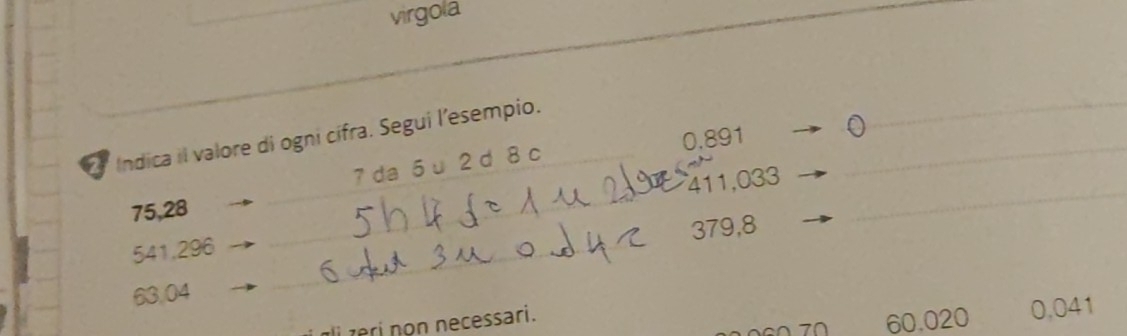 virgola
2 Indica il valore di ogni cifra. Segui l'esempio.
75,28 → 7 da 5 u 2 d 8 c
541,296 → 5h 4 1 u 2d
63,04 → 6 3u 0 d 4 c
0,891 → 0
411,033 →
379,8 →
gli zeri non necessari.
60,020 0,041